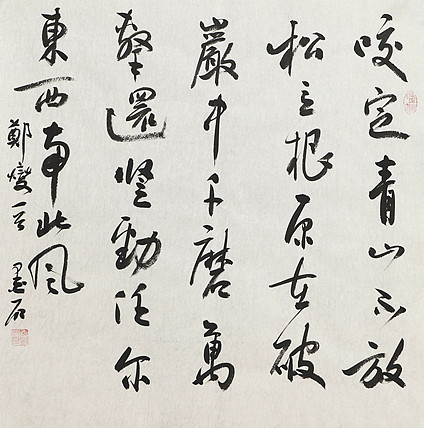 咬定青山不放
松立根原在破
巖中千磨萬
擊還堅勁任尔
東西南北風
鄭燮一首 墨石